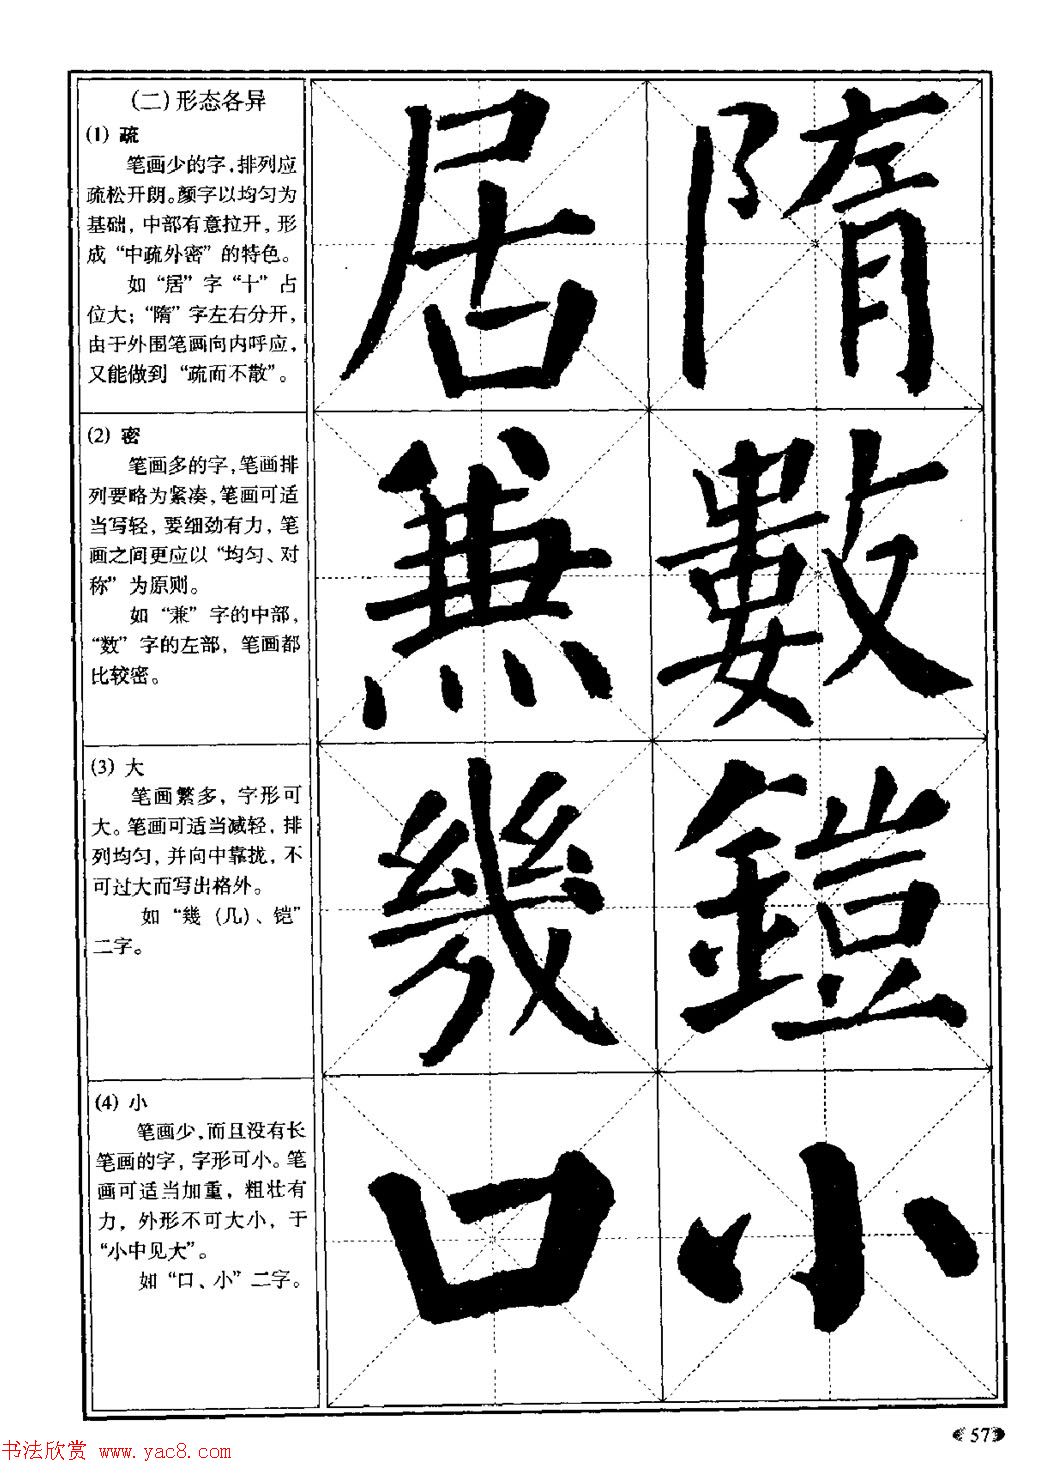 (二)形态各异
(1) 疏
笔画少的字,排列应
疏松开朗。颜字以均匀为
基础,中部有意拉开,形
成“中疏外密”的特色。
如“居”字“十”占
位大;“隋”字左右分开,
由于外围笔画向内呼应,
又能做到“疏而不散”。
居 隋
(2) 密
笔画多的字,笔画排
列要略为紧凑,笔画可适
当写轻,要细劲有力,笔
画之间更应以“均匀、对
称”为原则。
如“兼”字的中部,
“数”字的左部,笔画都
比较密。
兼 數
(3) 大
笔画繁多,字形可
大。笔画可适当减轻,排
列均匀,并向中靠拢,不
可过大而写出格外。
如“幾(几)、铠”
二字。
幾 鎧
(4) 小
笔画少,而且没有长
笔画的字,字形可小。笔
画可适当加重,粗壮有
力,外形不可大小,于
“小中见大”。
如“口、小”二字。
口 小
57
书法欣赏 www.yac8.com